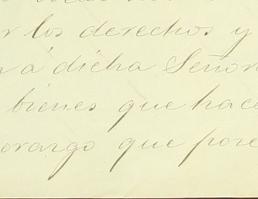 los derechos y
á dicha Señor
bienes que hace
orango que pose